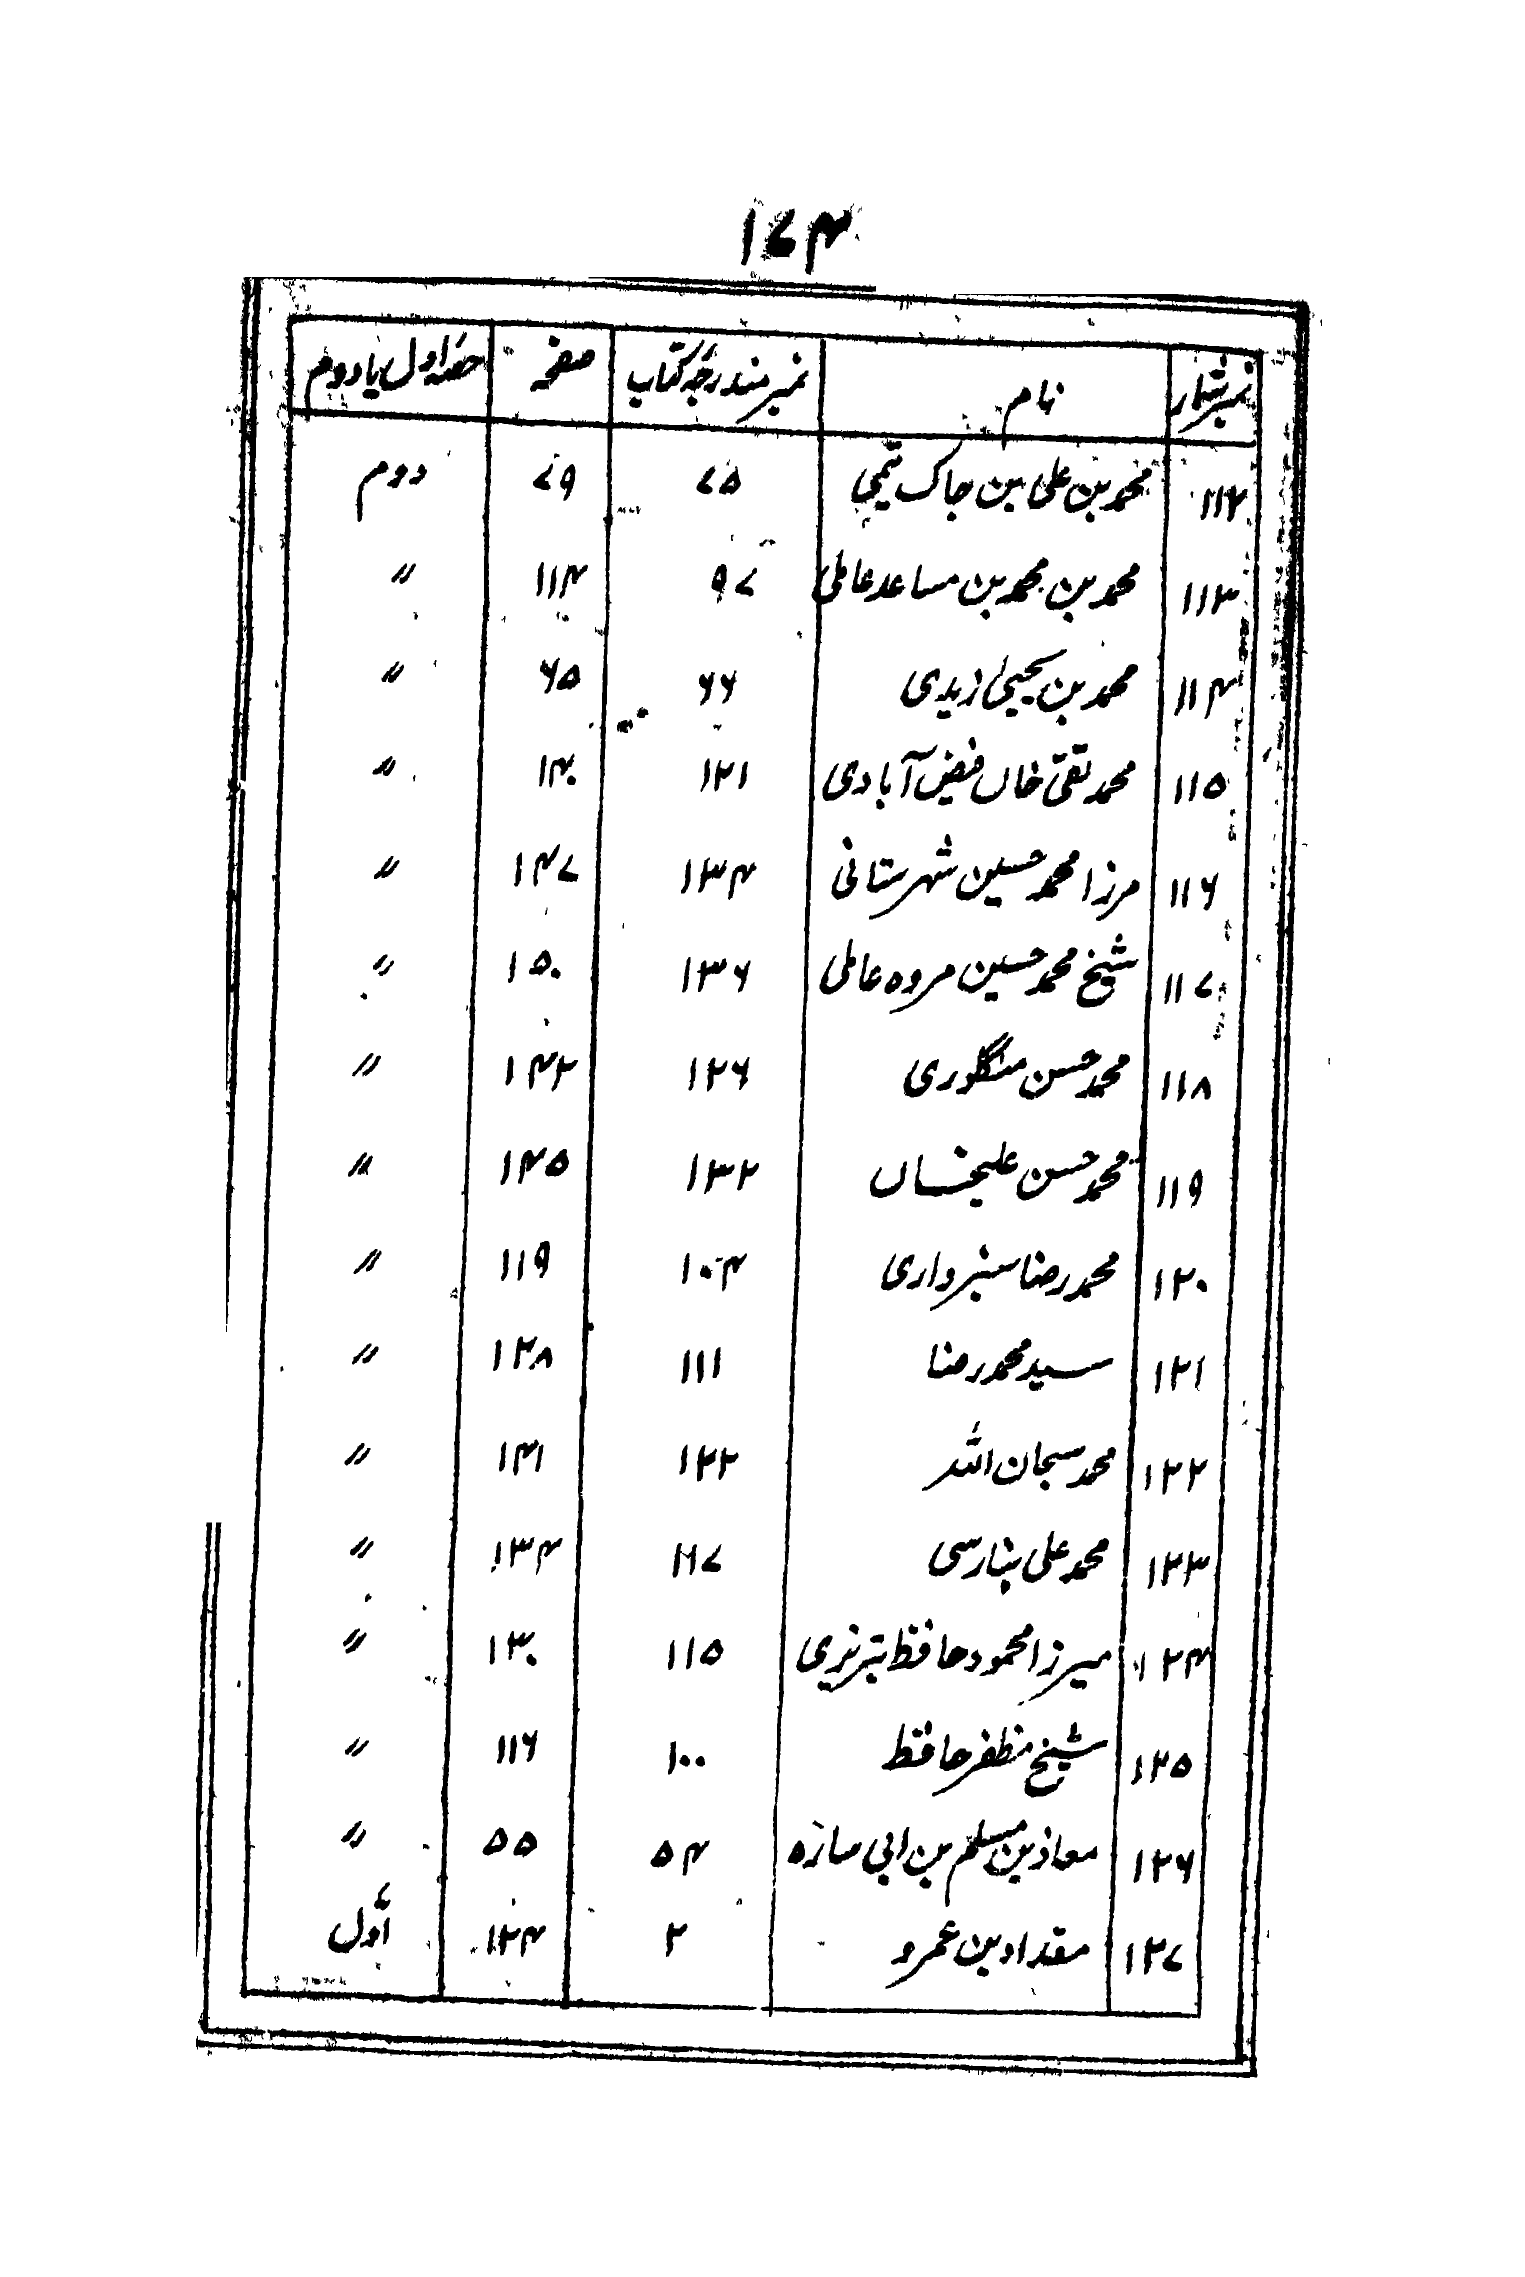 ۱۷۴
نمبر شمار نام نمبر مندرجہ کتاب صفحہ حصہ اول یا دوم
۱۱۲ محمد بن علی بن جاک تیمی ۷۵ ۷۹ دوم
۱۱۳ محمد بن محمد بن مساعد عاملی ۹۷ ۱۱۴ 〃
۱۱۴ محمد بن یحییٰ زیدی ۶۶ ۶۵ 〃
۱۱۵ محمد تقی خاں فیض آبادی ۱۲۱ ۱۴۰ 〃
۱۱۶ مرزا محمد حسین شہرستانی ۱۳۴ ۱۴۷ 〃
۱۱۷ شیخ محمد حسین مروہ عاملی ۱۳۶ ۱۵۰ 〃
۱۱۸ محمد حسن منگلوری ۱۲۶ ۱۴۲ 〃
۱۱۹ محمد حسن علیخاں ۱۳۲ ۱۴۵ 〃
۱۲۰ محمد رضا سبزواری ۱۰۴ ۱۱۹ 〃
۱۲۱ سید محمد رضا ۱۱۱ ۱۲۸ 〃
۱۲۲ محمد سبحان اللہ ۱۲۲ ۱۴۱ 〃
۱۲۳ محمد علی بنارسی ۱۱۷ ۱۳۴ 〃
۱۲۴ میرزا محمود حافظ تبریزی ۱۱۵ ۱۳۰ 〃
۱۲۵ شیخ مظفر حافظ ۱۰۰ ۱۱۶ 〃
۱۲۶ معاذ بن مسلم بن ابی سارہ ۵۴ ۵۵ 〃
۱۲۷ مقداد بن عمرو ۲ ۱۲۴ اول